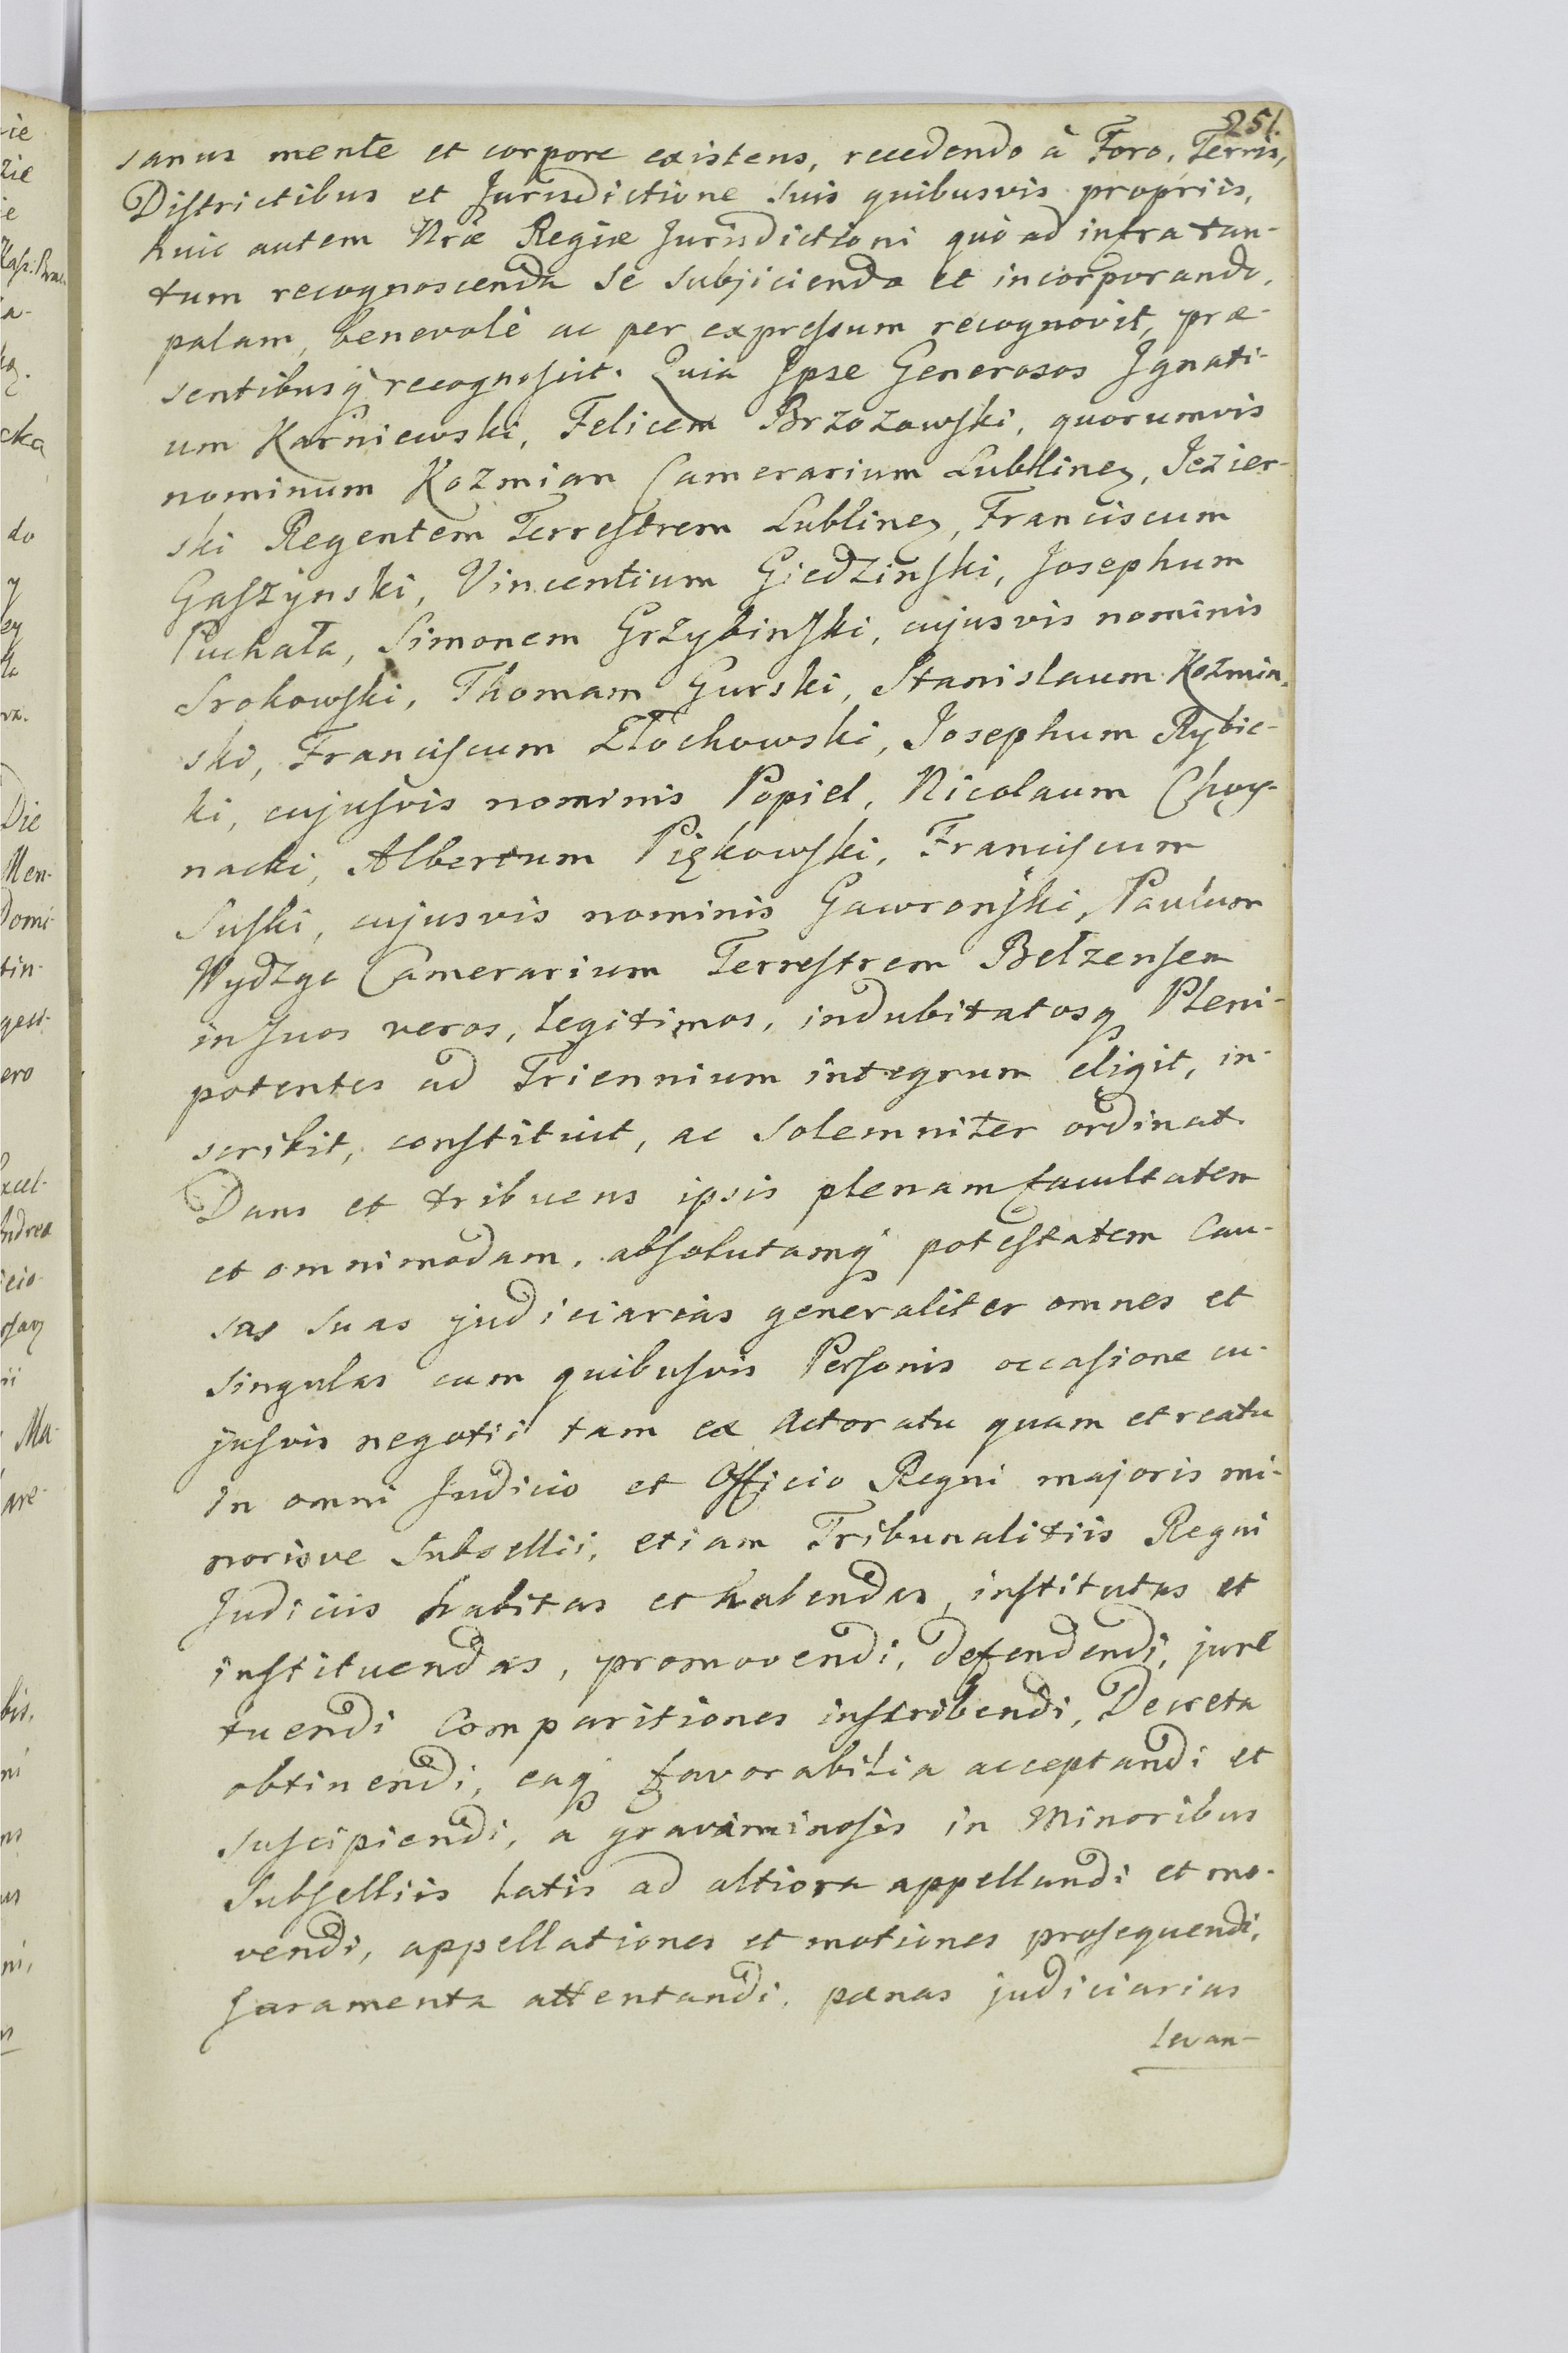 251.
sanus mente et corpore existens, recedendo à Foro, Terris,
Districtibus et Jurisdictione suis quibusvis propriis,
huic autem Nræ Regiæ Jurisdictioni quò ad infra tan-
tum recognoscenda se subjiciendo et incorporando,
palam, benevolè ac per expressum recognovit, præ-
sentibusq recognoscit. Quia Ipse Generosos Ignati-
um Karniewski, Felicem Brzozowski, quorumvis
nominum Kozmian Camerarium Lublinen, Jezier-
ski Regentem Terrestrem Lublinen, Franciscum
Gaszynski, Vincentium Giedzinski, Josephum
Puchała, Simonem Grzybinski, cujusvis nominis
Srokowski, Thomam Gurski, Stanislaum Kozmin-
ski, Franciscum Złochowski, Josephum Rybic-
ki, cujusvis nominis Popiel, Nicolaum Choy-
nacki, Albertum Piękowski, Franciscum
Suski, cujusvis nominis Gawronski, Paulum
Wydzga Camerarium Terrestrem Belzensem
in suos veros, legitimos, indubitatosq Pleni-
potentes ad Triennium integrum eligit, in-
scribit, constituit, ac solemniter ordinat.
Dans et tribuens ipsis plenam facultatem
et omnimodam, absolutamq potestatem Cau-
sas suas judiciarias generaliter omnes et
singulas cum quibusvis Personis occasione cu-
jusvis negotii tam ex Actoratu quam et reatu
in omni Judicio et Officio Regni majoris mi-
norisve Subsellii, etiam Tribunalitiis Regni
Judiciis habitas et habendas, institutas et
instituendas, promovendi, defendendi, jure
tuendi Comparitiones inscribendi, Decreta
obtinendi, eaq favorabilia acceptandi et
suscipiendi, a gravaminosis in Minoribus
Subselliis latis ad altiora appellandi et mo-
vendi, appellationes et motiones prosequendi,
Juramenta attentandi, pænas judiciarias
levan-